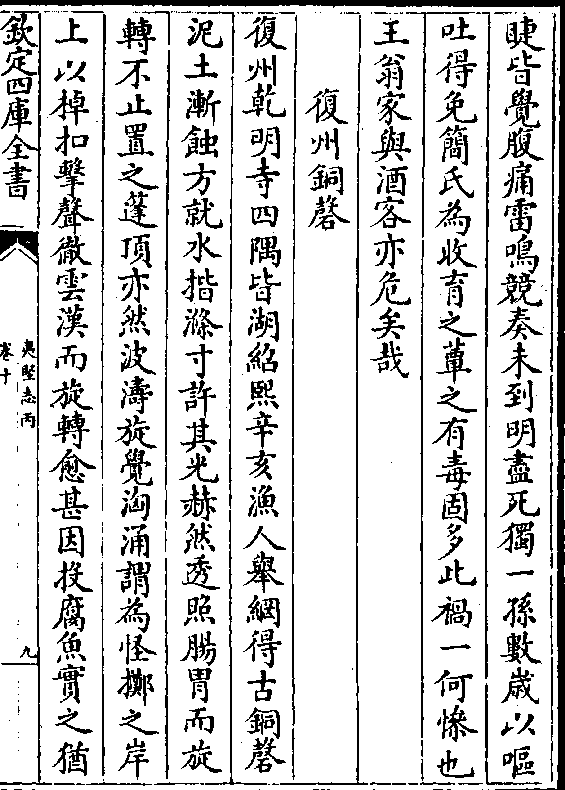 睫皆覺腹痛雷鳴競奏未到明盡死獨一孫數歲以嘔
吐得免簡氏為收育之蕈之有毒固多此禍一何慘也
王翁家與酒客亦危矣哉
復州銅磬
復州乾明寺四隅皆湖紹熙辛亥漁人舉網得古銅磬
泥土漸蝕方就水揩滌寸許其光赫然透照腸胃而旋
轉不止置之蓬頂亦然波濤旋覺洶涌謂為怪擲之岸
上以棹扣擊聲徹雲漢而旋轉愈甚因投腐魚實之猶
欽定四庫全書
夷堅志丙
卷十
九